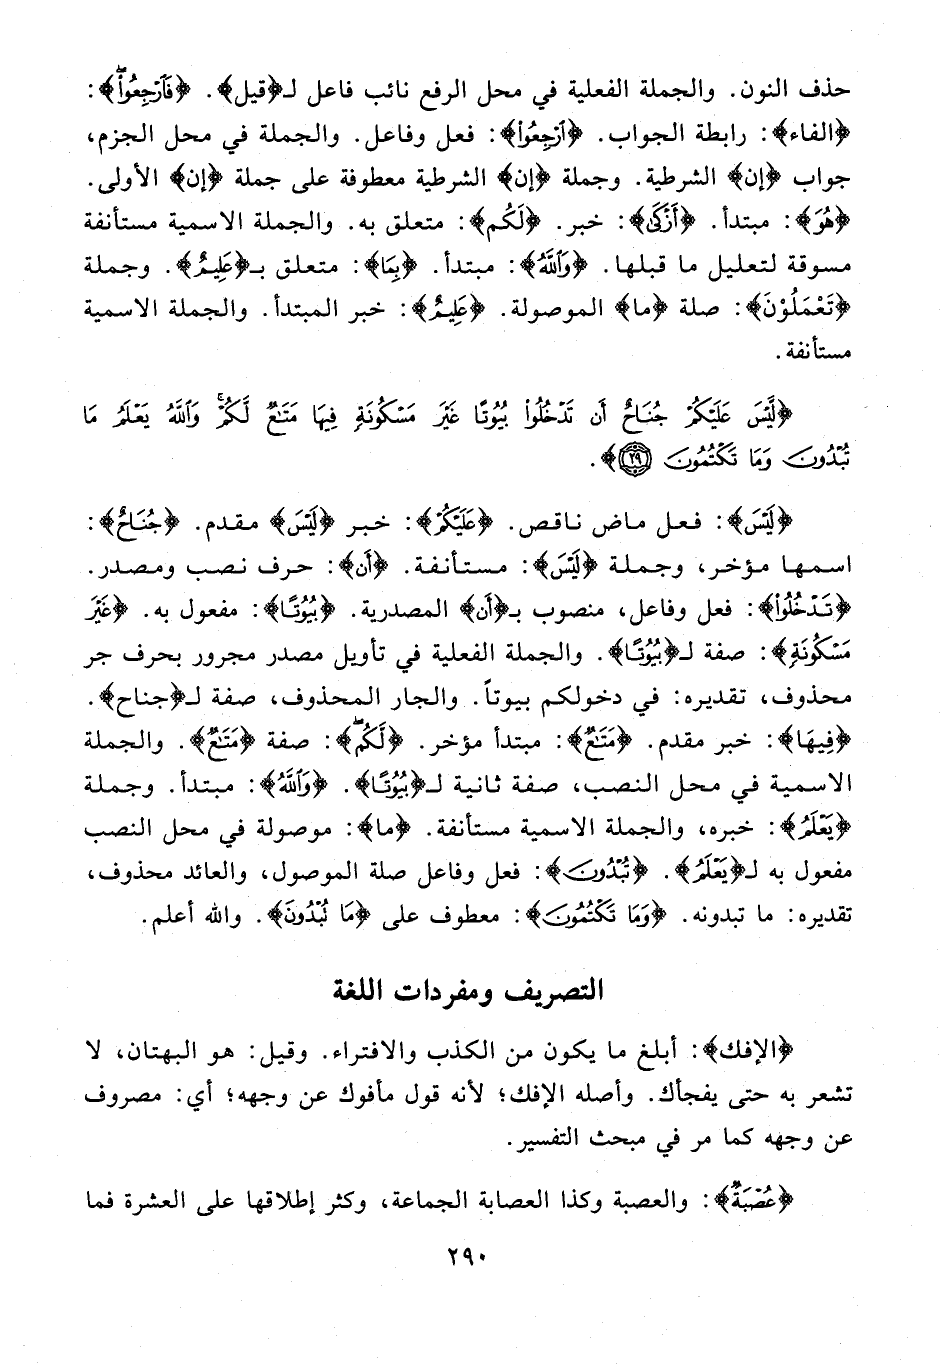 حذف النون. والجملة الفعلية في محل الرفع نائب فاعل لـ﴿قيل﴾. ﴿فَٱرْجِعُوا۟ۖ﴾:
﴿الفاء﴾: رابطة الجواب. ﴿ٱرْجِعُوا۟﴾: فعل وفاعل. والجملة في محل الجزم،
جواب ﴿إن﴾ الشرطية. وجملة ﴿إن﴾ الشرطية معطوفة على جملة ﴿إن﴾ الأولى.
﴿هُوَ﴾: مبتدأ. ﴿أَزْكَىٰ﴾: خبر. ﴿لَكُم﴾: متعلق به. والجملة الاسمية مستأنفة
مسوقة لتعليل ما قبلها. ﴿وَٱللَّهُ﴾: مبتدأ. ﴿بِمَا﴾: متعلق بـ﴿عَلِيمٌ﴾. وجملة
﴿تَعْمَلُوْنَ﴾: صلة ﴿ما﴾ الموصولة. ﴿عَلِيمٌ﴾: خبر المبتدأ. والجملة الاسمية
مستأنفة.
﴿لَّيْسَ عَلَيْكُمْ جُنَاحٌ أَن تَدْخُلُوا۟ بُيُوتًا غَيْرَ مَسْكُونَةٍ فِيهَا مَتَٰعٌ لَّكُمْۚ وَٱللَّهُ يَعْلَمُ مَا
تُبْدُونَ وَمَا تَكْتُمُونَ ٢٩﴾.
﴿لَيْسَ﴾: فعل ماض ناقص. ﴿عَلَيْكُمْ﴾: خبر ﴿لَيْسَ﴾ مقدم. ﴿جُنَاحٌ﴾:
اسمها مؤخر، وجملة ﴿لَيْسَ﴾: مستأنفة. ﴿أَن﴾: حرف نصب ومصدر.
﴿تَدْخُلُوا۟﴾: فعل وفاعل، منصوب بـ﴿أن﴾ المصدرية. ﴿بُيُوتًا﴾: مفعول به. ﴿غَيْرَ
مَسْكُونَةٍ﴾: صفة لـ﴿بُيُوتًا﴾. والجملة الفعلية في تأويل مصدر مجرور بحرف جر
محذوف، تقديره: في دخولكم بيوتاً. والجار المحذوف، صفة لـ﴿جناح﴾.
﴿فِيهَا﴾: خبر مقدم. ﴿مَتَٰعٌ﴾: مبتدأ مؤخر. ﴿لَكُمْۖ﴾: صفة ﴿مَتَٰعٌ﴾. والجملة
الاسمية في محل النصب، صفة ثانية لـ﴿بُيُوتًا﴾. ﴿وَٱللَّهُ﴾: مبتدأ. وجملة
﴿يَعْلَمُ﴾: خبره، والجملة الاسمية مستأنفة. ﴿ما﴾: موصولة في محل النصب
مفعول به لـ﴿يَعْلَمُ﴾. ﴿تُبْدُونَ﴾: فعل وفاعل صلة الموصول، والعائد محذوف،
تقديره: ما تبدونه. ﴿وَمَا تَكْتُمُونَ﴾: معطوف على ﴿مَا تُبْدُونَ﴾. والله أعلم.
التصريف ومفردات اللغة
﴿الإفك﴾: أبلغ ما يكون من الكذب والافتراء. وقيل: هو البهتان، لا
تشعر به حتى يفجأك. وأصله الإفك؛ لأنه قول مأفوك عن وجهه؛ أي: مصروف
عن وجهه كما مر في مبحث التفسير.
﴿عُصْبَةٌ﴾: والعصبة وكذا العصابة الجماعة، وكثر إطلاقها على العشرة فما
٢٩٠